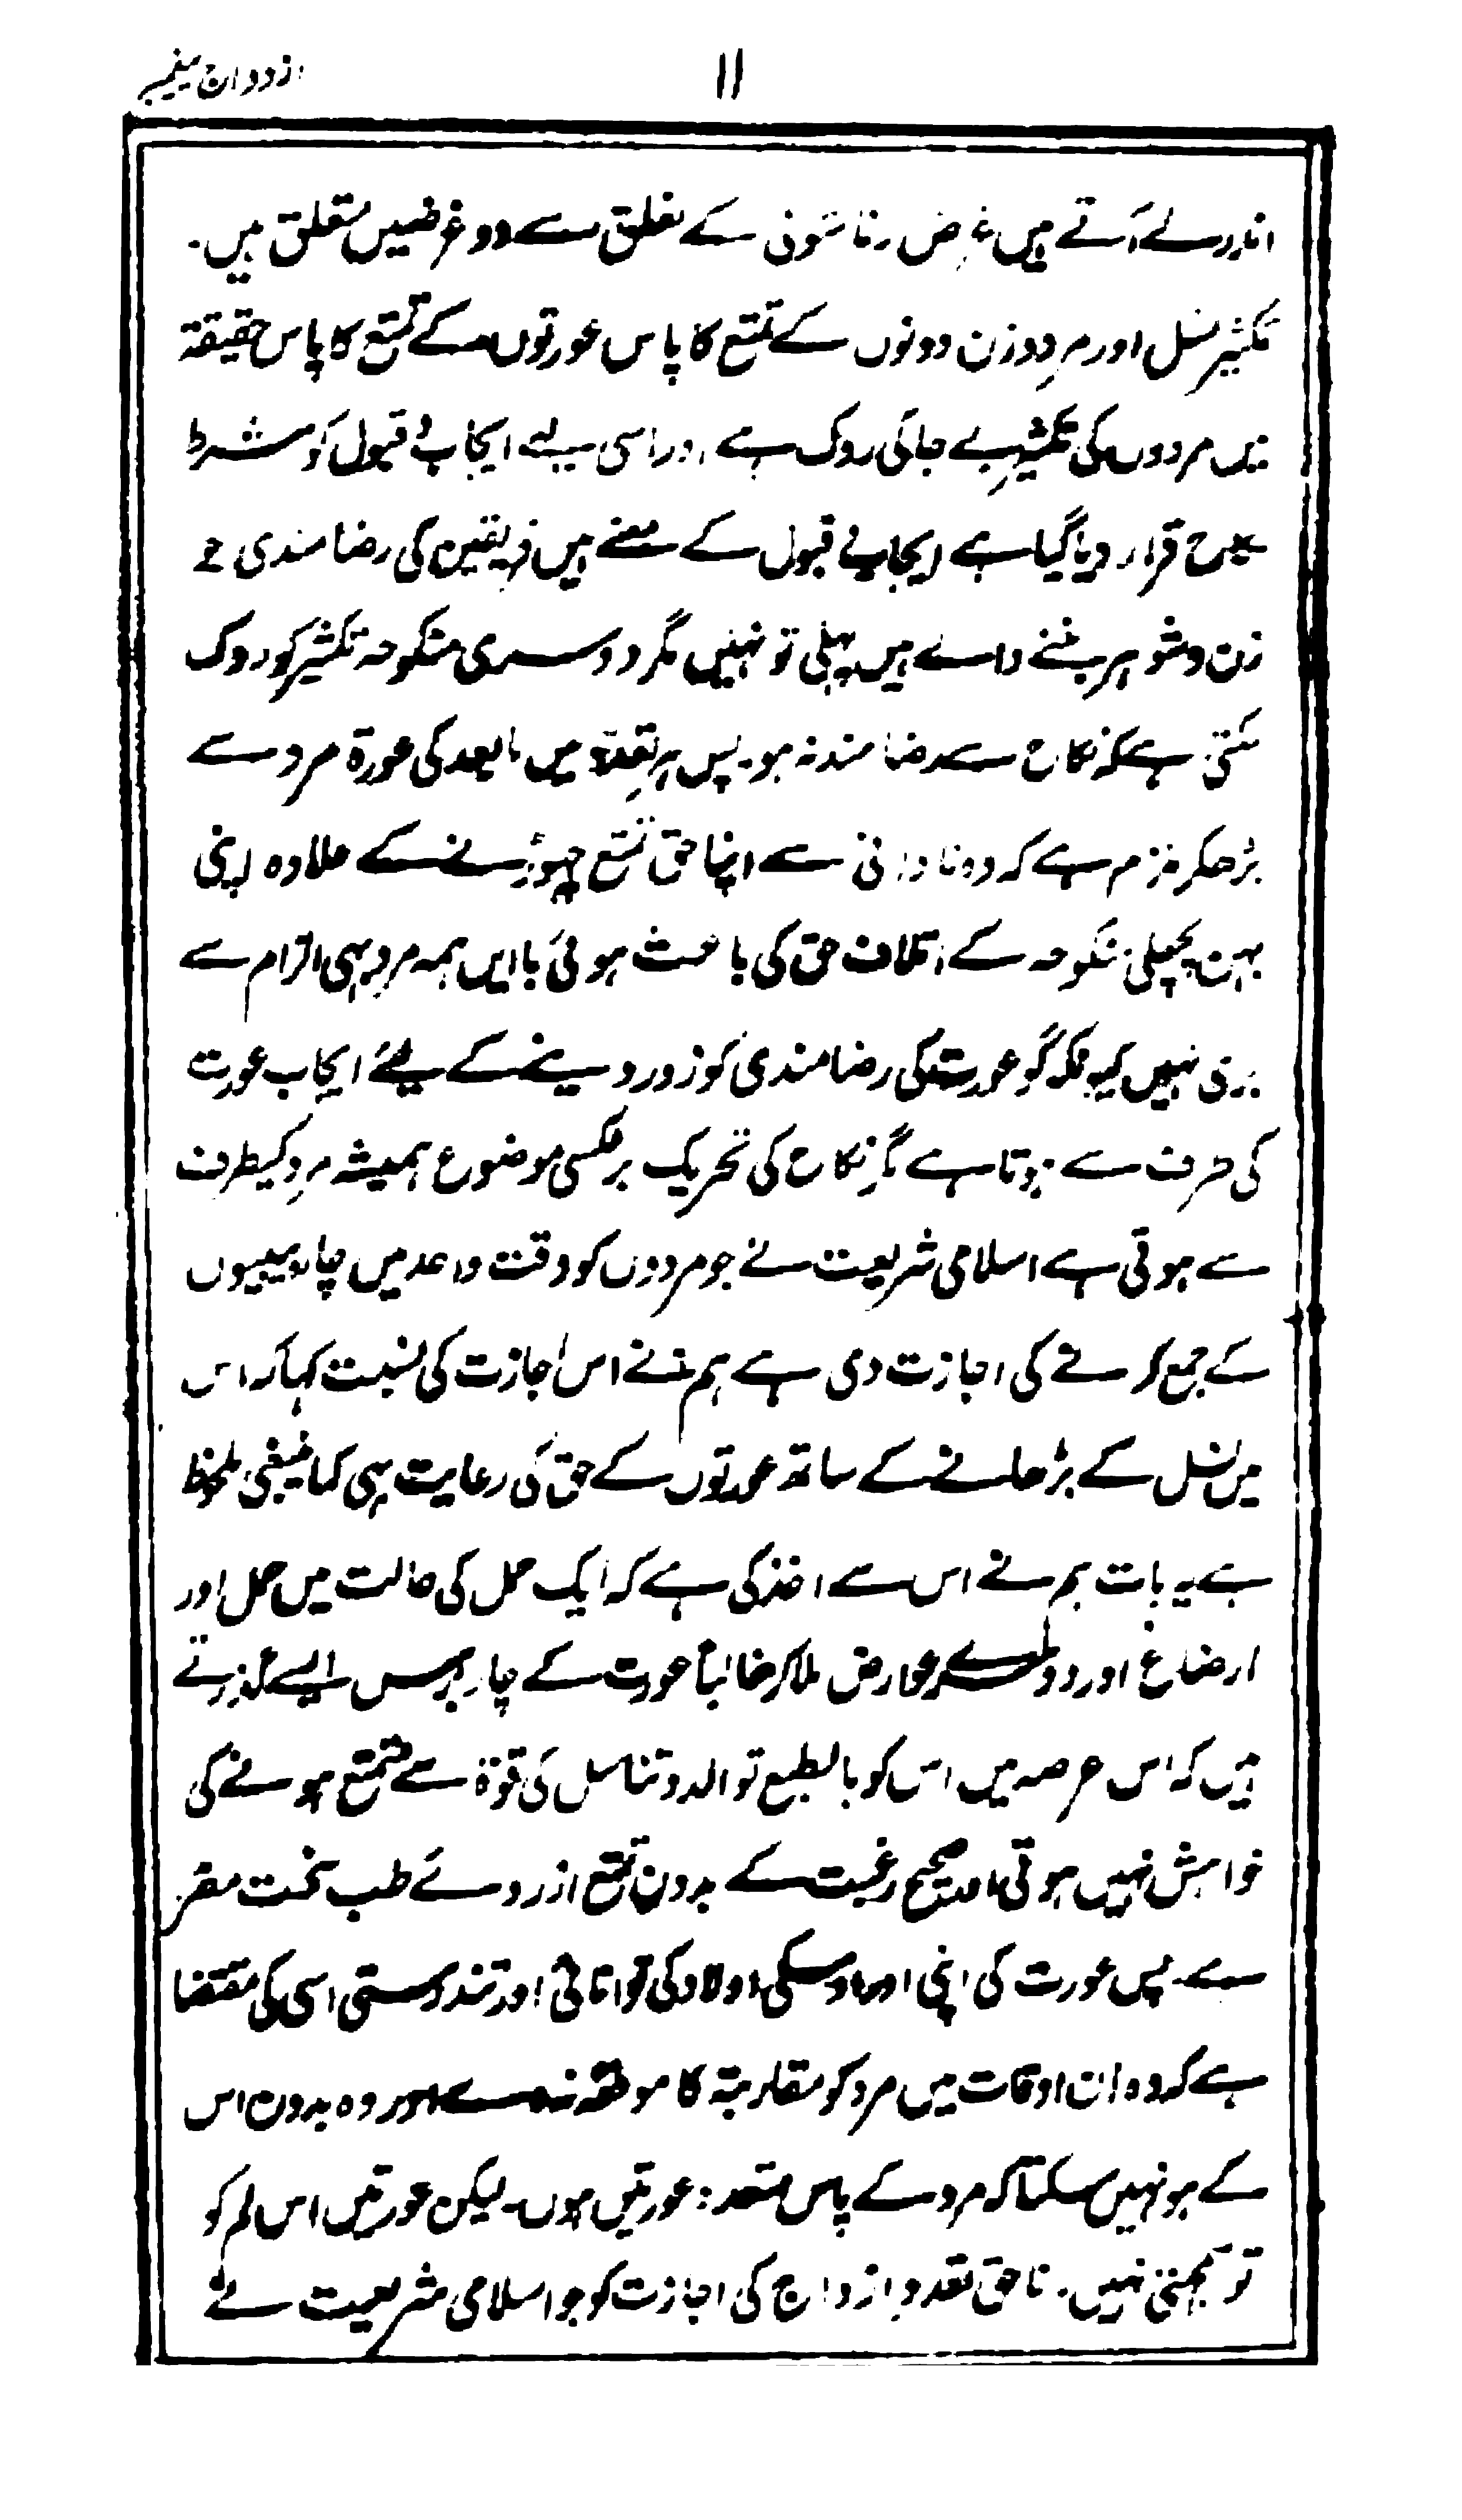 ۱۱
ازدواج پیغمبر
کے تعلق سے دو غرضیں متعلق ہیں۔
تکثیر نسل اور مرد و زن دونوں کے تمتع کا پاس عورتوں کے تمتع کا پاس حقیقۃ
میں مردوں کی تکثیر بے جا کی روک ہے اور اسی لیے ایجاب و قبول کو شرط
نکاح قرار دیا گیا ہے ایجاب و قبول کے معنے ہیں فریقین کی رضامندی
زن و شوہر بننے والے ہیں پہلی تو نہیں مگر دوسری منکوحہ تکثیر کو روک
سکتی ہے کہ نکاح سے رضامند نہ ہو۔ پس ہر تعدد میں مابعد کی عورۃ مرد سے
بڑھکر ملزم ہے کہ وہ نادانی سے اپنا حق تمتع چھوڑنے کے علاوہ اپنی
بہن پچھلی منکوحہ کے اتلاف حق کی باعث ہوئی با ایں ہمہ مرد بھی الزام سے
بری نہیں کیونکہ گو عورت کی رضامندی کو زور دینے کے لئے ایجاب عورت
کی طرف سے ہوتا ہے مگر نکاح کی تحریک برعکس موضوع ہمیشہ مرد کیطرف
سے ہوتی ہے اسلامی شریعت نے جو مردوں کو وقت واحد میں چار بیبیوں
کے جمع کرنے کی اجازت دی ہے ہم نے اس اجازت کی نسبت کہا کہ اس
میں نسل کے بڑھانے کے ساتھ عورتوں کے حق کی رعایت بھی کما ینبغی ملحوظ
ہے یہ بات ہم نے اس سے اخذ کی ہے کہ ایک حمل کی حالت میں حمل اور
ارضاع اور دوسرے عوارض ملا کر غالباً عورت کے چار برس ایسے گذرتے
ہیں کہ اس عرصہ میں اس کو بالطبع توالد و تناسل کی قوۃ سے متمتع ہونے کی
خواہش نہیں ہوتی اور صحیح رغبت کے بدون تمتع از روے طب سخت مضر
ہے۔ پس عورت کی اپنی اور اوسکی اولاد کی توانائی اور تندرستی اسی کی مقتضا
ہے کہ وہ ان اوقات میں مرد کو مقاربۃ کا موقع نہ دے اور وہ بدون اس
کے ہو نہیں سکتا کہ مرد کے پاس متعدد عورتیں ہوں۔ لیکن عورتیں اس لم کو
تو سمجھتی نہیں۔ ناحق تعدد ازدواج کی اجازت کو جو اسلامی شریعت نے